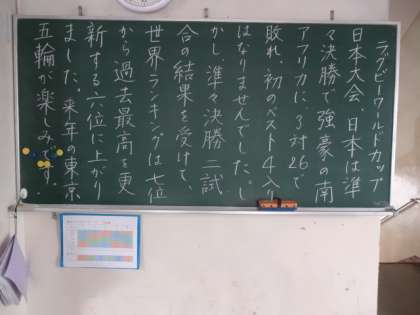 ラグビーワールドカップ
日本大会 日本は準
々決勝で強豪の南
アフリカに、3対26で
敗れ、初のベスト4入り
はなりませんでした。し
かし、準々決勝二試
合の結果を受けて、
世界ランキングは七位
から過去最高を更
新する六位に上がり
ました。来年の東京
五輪が楽しみです。